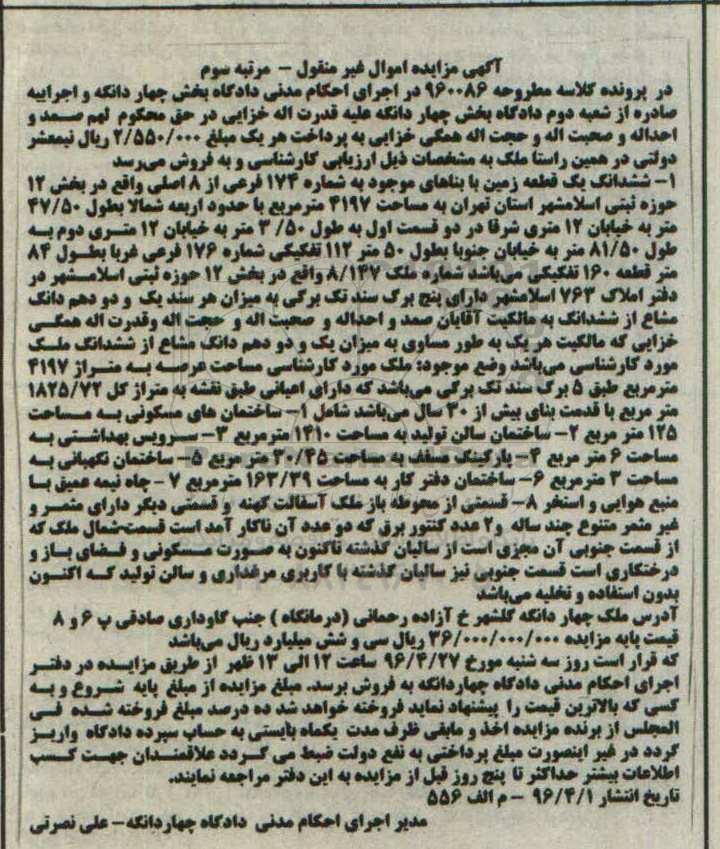 آگهی مزایده اموال غیر منقول – مرتبه سوم
در پرونده کلاسه مطروحه ۹۶۰۰۸۶ در اجرای احکام مدنی دادگاه بخش چهار دانگه و اجراییه
صادره از شعبه دوم دادگاه بخش چهار دانگه علیه قدرت اله خزایی در حق محکوم لهم صمد و
احداله و صحبت اله و حجت اله همگی خزایی به پرداخت هر یک مبلغ ۲/۵۵۰/۰۰۰ ریال نیمعشر
دولتی در همین راستا ملک به مشخصات ذیل ارزیابی کارشناسی و به فروش می‌رسد
۱– ششدانگ یک قطعه زمین با بناهای موجود به شماره ۱۷۴ فرعی از ۸ اصلی واقع در بخش ۱۲
حوزه ثبتی اسلامشهر استان تهران به مساحت ۴۱۹۷ مترمربع با حدود اربعه شمالا بطول ۴۷/۵۰
متر به خیابان ۱۲ متری شرقا در دو قسمت اول به طول ۳/۵۰ متر به خیابان ۱۲ متری دوم به
طول ۸۱/۵۰ متر به خیابان جنوبا بطول ۵۰ متر ۱۱۲ تفکیکی شماره ۱۷۶ فرعی غربا بطول ۸۴
متر قطعه ۱۶۰ تفکیکی می‌باشد شماره ملک ۸/۱۴۷ واقع در بخش ۱۲ حوزه ثبتی اسلامشهر در
دفتر املاک ۷۶۳ اسلامشهر دارای پنج برگ سند تک برگی به میزان هر سند یک و دو دهم دانگ
مشاع از ششدانگ به مالکیت آقایان صمد و احداله و صحبت اله و حجت اله وقدرت اله همگی
خزایی که مالکیت هر یک به طور مساوی به میزان یک و دو دهم دانگ مشاع از ششدانگ ملک
مورد کارشناسی می‌باشد وضع موجود: ملک مورد کارشناسی مساحت عرصه به متراژ ۴۱۹۷
مترمربع طبق ۵ برگ سند تک برگی می‌باشد که دارای اعیانی طبق نقشه به متراژ کل ۱۸۲۵/۷۲
متر مربع با قدمت بنای بیش از ۳۰ سال می‌باشد شامل ۱– ساختمان های مسکونی به مساحت
۱۲۵ متر مربع ۲– ساختمان سالن تولید به مساحت ۱۴۱۰ مترمربع ۳– سرویس بهداشتی به
مساحت ۶ متر مربع ۴– پارکینگ مسقف به مساحت ۳۰/۴۵ متر مربع ۵– ساختمان نگهبانی به
مساحت ۳ مترمربع ۶– ساختمان دفتر کار به مساحت ۱۶۳/۳۹ مترمربع ۷ –چاه نیمه عمیق با
منبع هوایی و استخر ۸– قسمتی از محوطه باز ملک آسفالت کهنه و قسمتی دیگر دارای مثمر و
غیر مثمر متنوع چند ساله و۲ عدد کنتور برق که دو عدد آن ناکار آمد است قسمت‌شمال ملک که
از قسمت جنوبی آن مجزی است از سالیان گذشته تاکنون به صورت مسکونی و فضای باز و
درختکاری است قسمت جنوبی نیز سالیان گذشته با کاربری مرغداری و سالن تولید که اکنون
بدون استفاده و تخلیه می‌باشد
آدرس ملک چهار دانگه گلشهر خ آزاده رحمانی (درمانگاه ) جنب گاوداری صادقی پ ۶ و ۸
قیمت پایه مزایده ۳۶/۰۰۰/۰۰۰/۰۰۰ ریال سی و شش میلیارد ریال می‌باشد
که قرار است روز سه شنبه مورخ ۹۶/۴/۲۷ ساعت ۱۲ الی ۱۳ ظهر از طریق مزایده در دفتر
اجرای احکام مدنی دادگاه چهاردانگه به فروش برسد. مبلغ مزایده از مبلغ پایه شروع و به
کسی که بالاترین قیمت را پیشنهاد نماید فروخته خواهد شد ده درصد مبلغ فروخته شده فی
المجلس از برنده مزایده اخذ و مابقی ظرف مدت یکماه بایستی به حساب سپرده دادگاه واریز
گردد در غیر اینصورت مبلغ پرداختی به نفع دولت ضبط می گردد علاقمندان جهت کسب
اطلاعات بیشتر حداکثر تا پنج روز قبل از مزایده به این دفتر مراجعه نمایند.
تاریخ انتشار ۹۶/۴/۱ – م الف ۵۵۶
مدیر اجرای احکام مدنی دادگاه چهاردانگه– علی نصرتی